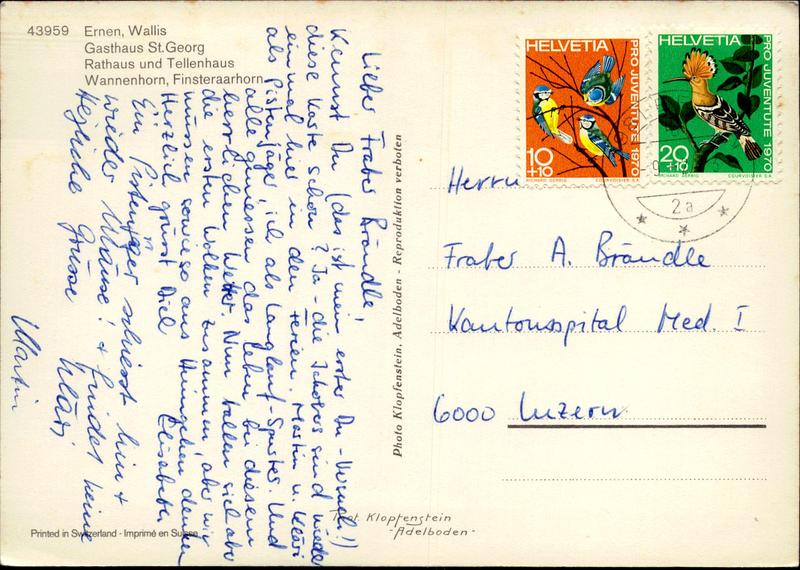 43959 Ernen, Wallis
Gasthaus St.Georg
Rathaus und Tellenhaus
Wannenhorn, Finsteraarhorn
Lieber Frater Brändle,
Kannst Du (das ist mein erster Du-Versuch!)
diese Karte schon? Ja - die Schobers sind wieder
einmal hier in den Ferien. Martin u. Kläri
als Pistenjäger, ich als Langlauf-Sportler. Und
alle geniessen das Leben bei diesem
herrlichen Wetter. Nun ballen sich aber
die ersten Wolken zusammen, aber wir
müssen sowieso ans Heimgehen denken
Herzlich grüsst Dich Elisabeth
Ein Pistenjäger schiesst hin +
wieder Mäuse! + findet keine
Herzliche Grüsse Kläri
Martin
Photo Klopfenstein, Adelboden - Reproduktion verboten
HELVETIA
PRO JUVENTUTE 1970
10
+10
RICHARD GERBIG
COURVOISIER S.A.
HELVETIA
PRO JUVENTUTE 1970
20
+10
RICHARD GERBIG
COURVOISIER S.A.
2a
Herrn
Frater A. Brändle
Kantonsspital Med. I
6000 Luzern
Klopfenstein
-Adelboden-
Printed in Switzerland - Imprimé en Suisse